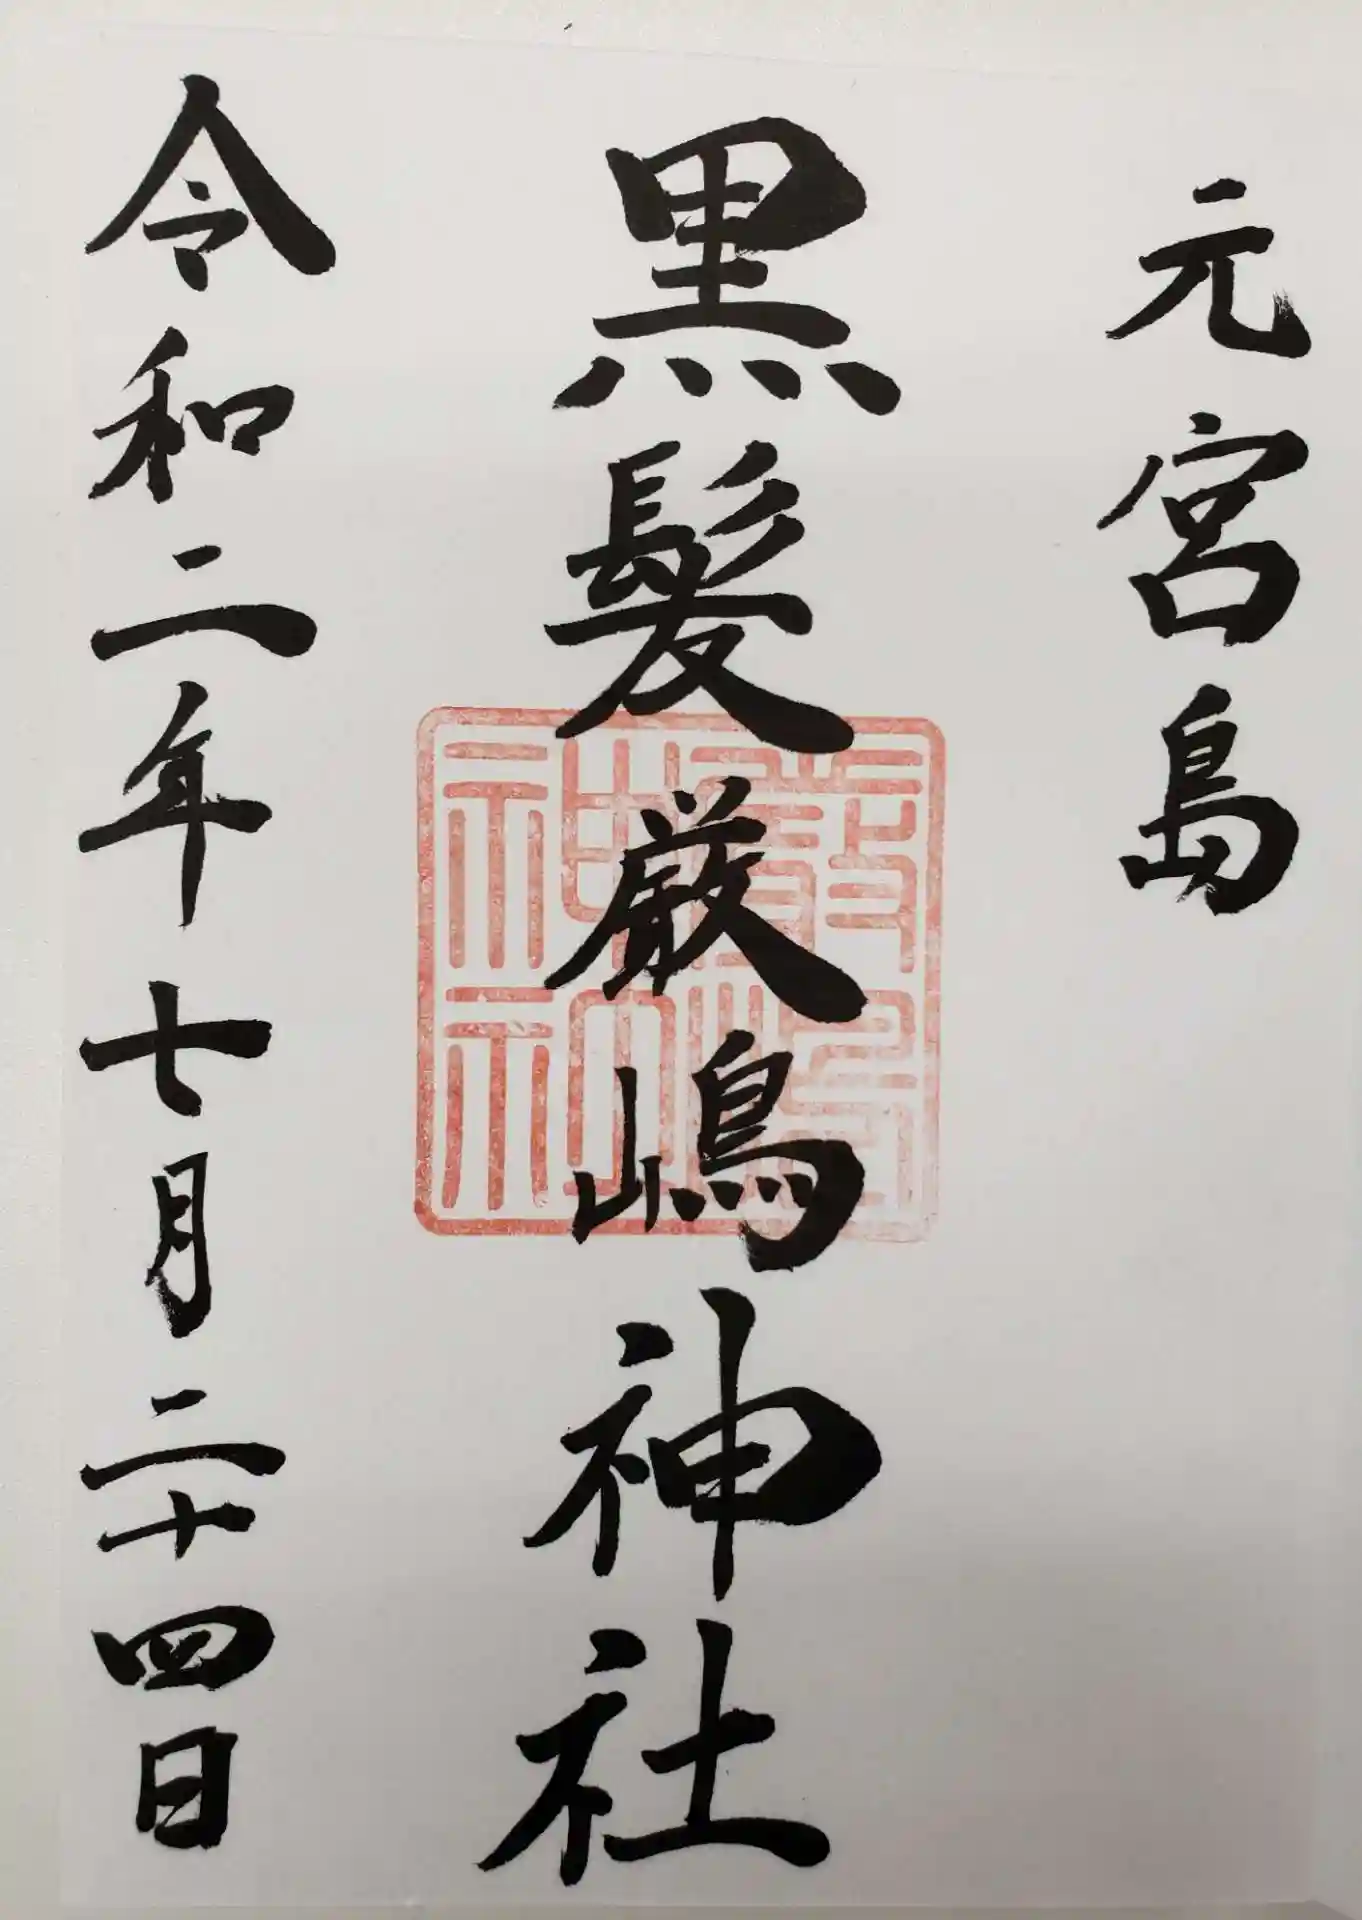 元宮島
黒髪厳嶋神社
令和二年七月二十四日
嚴嶋神社